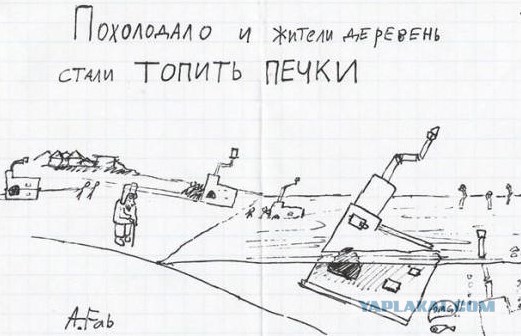 Похолодало и жители деревень
стали ТОПИТЬ ПЕЧКИ
A.Fab
YAPLAKAL.COM